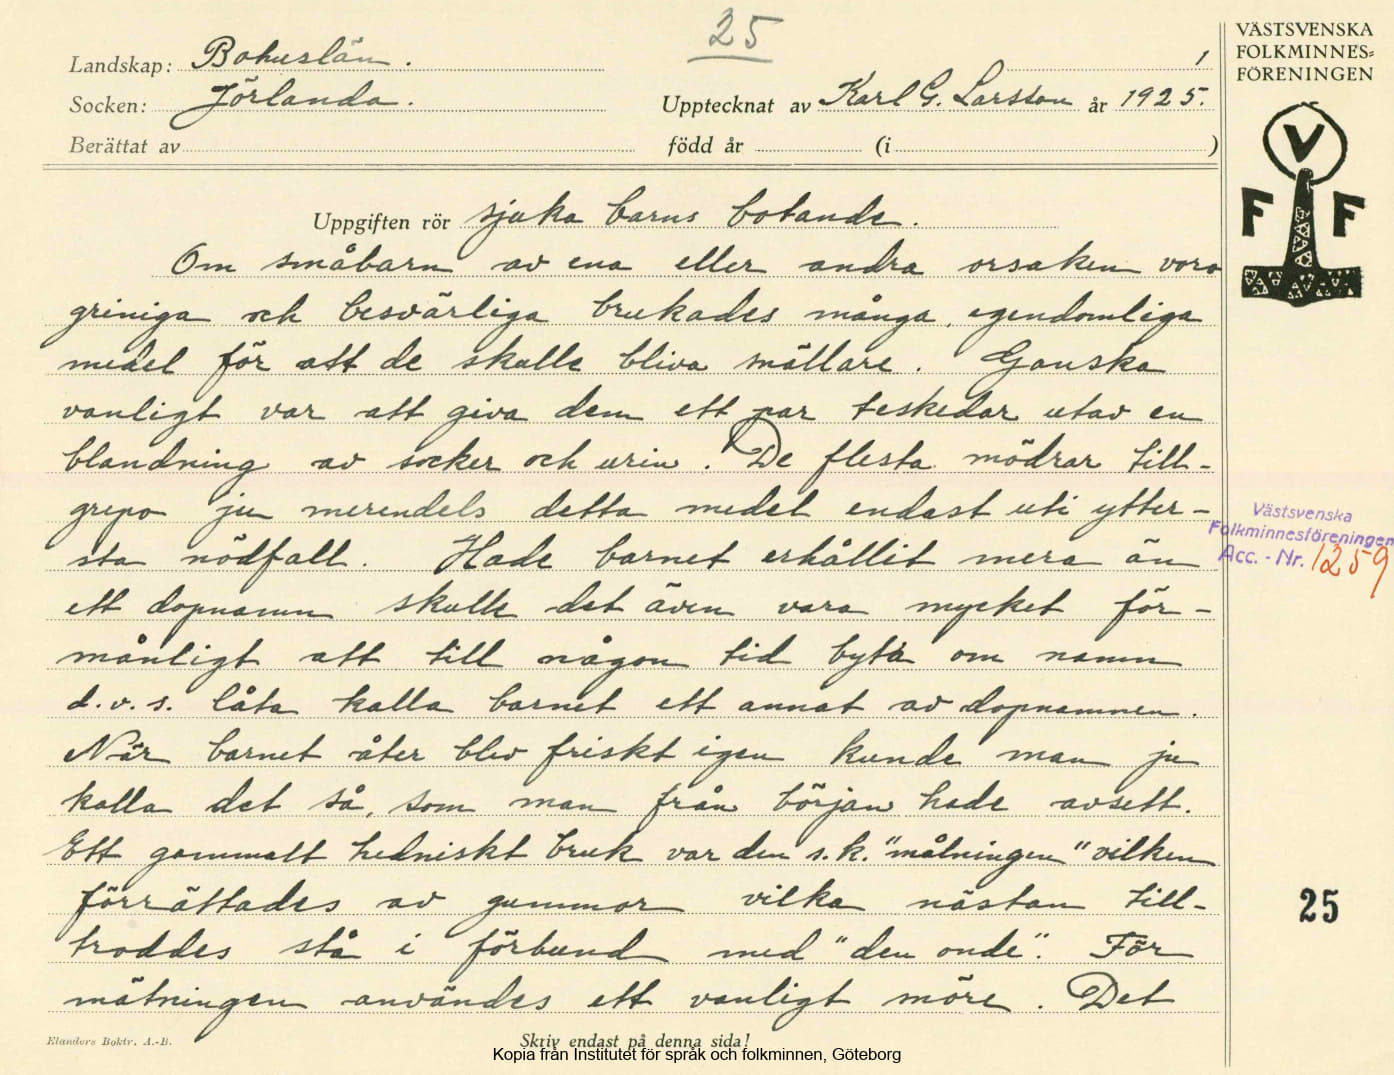 25
VÄSTSVENSKA
FOLKMINNES=
FÖRENINGEN
Landskap: Bohuslän.
1
Socken: Jörlanda.
Upptecknat av Karl G. Larsson år 1925.
Berättat av
född år (i )
V
F F
Uppgiften rör sjuka barns botande.
Om småbarn av ena eller andra orsaken voro
griniga och besvärliga brukades många egendomliga
medel för att de skulle bliva snällare. Ganska
vanligt var att giva dem ett par teskedar utav en
blandning av socker och urin. De flesta mödrar till-
grepo ju merendels detta medel endast uti ytter-
sta nödfall. Hade barnet erhållit mera än
ett dopnamn skulle det även vara mycket för-
månligt att till någon tid byta om namn
d.v.s. låta kalla barnet ett annat av dopnamnen.
När barnet åter blev friskt igen kunde man ju
kalla det så, som man från början hade avsett.
Ett gammalt hedniskt bruk var den s.k. "mätningen" vilken
förrättades av gummor vilka nästan till-
troddes stå i förbund med "den onde". För
mätningen användes ett vanligt snöre. Det
Västsvenska
Folkminnesföreningen
Acc. - Nr. 1259
25
Elanders Boktr. A.-B.
Skriv endast på denna sida!
Kopia från Institutet för språk och folkminnen, Göteborg